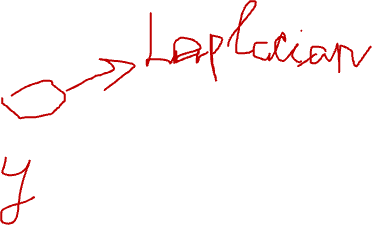 Laplacian
y